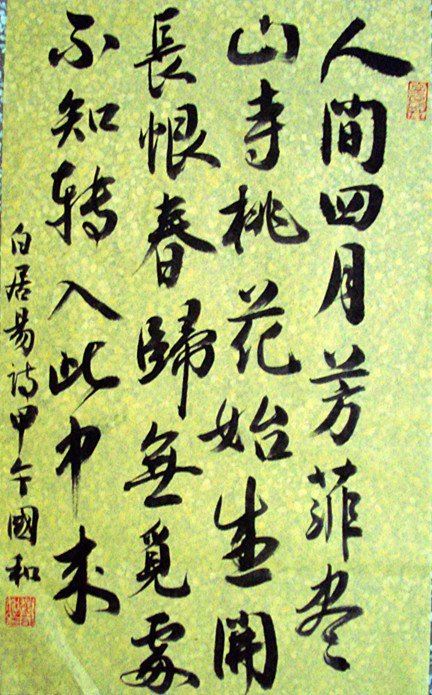 人間四月芳菲尽
山寺桃花始盛開
長恨春歸無覓處
不知轉入此中来
白居易诗甲午國和